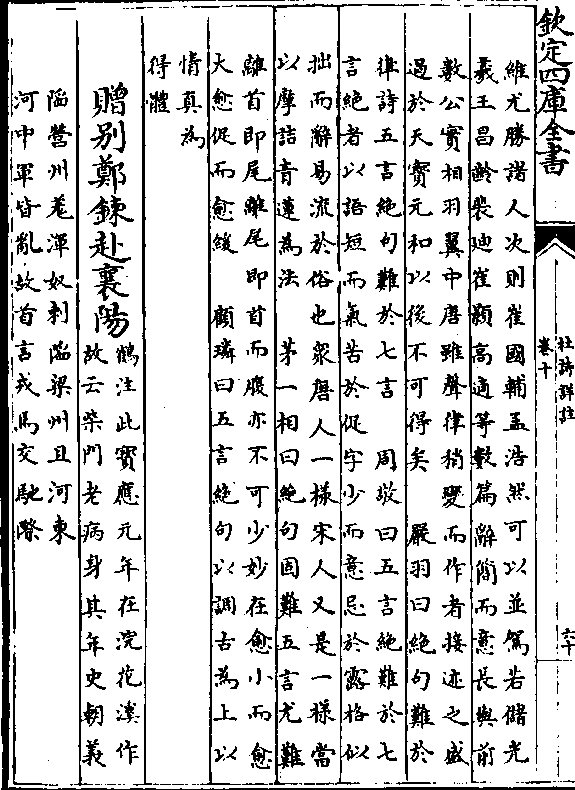 欽定四庫全書
杜詩詳註
卷十
六十
維尤勝諸人次則崔國輔孟浩然可以並駕若儲光
羲王昌齡裴廸崔顥高適等數篇辭簡而意長與前
數公實相羽翼中唐雖聲律稍變而作者接迹之盛
過於天寶元和以後不可得矣　嚴羽曰絶句難於
律詩五言絶句難於七言　周敬曰五言絶難於七
言絶者以語短而氣苦於促字少而意忌於露格似
拙而辭易流於俗也衆唐人一樣宋人又是一樣當
以摩詰青蓮為法　茅一相曰絶句固難五言尤難
離首即尾離尾即首而腹亦不可少妙在愈小而愈
大愈促而愈緩　顧璘曰五言絶句以調古為上以
情真為
得體
贈別鄭鍊赴襄陽
鶴注此寶應元年在浣花溪作
故云柴門老病身其年史朝義
陷營州羗渾奴剌陷梁州且河東
河中軍皆亂故首言戎馬交馳際